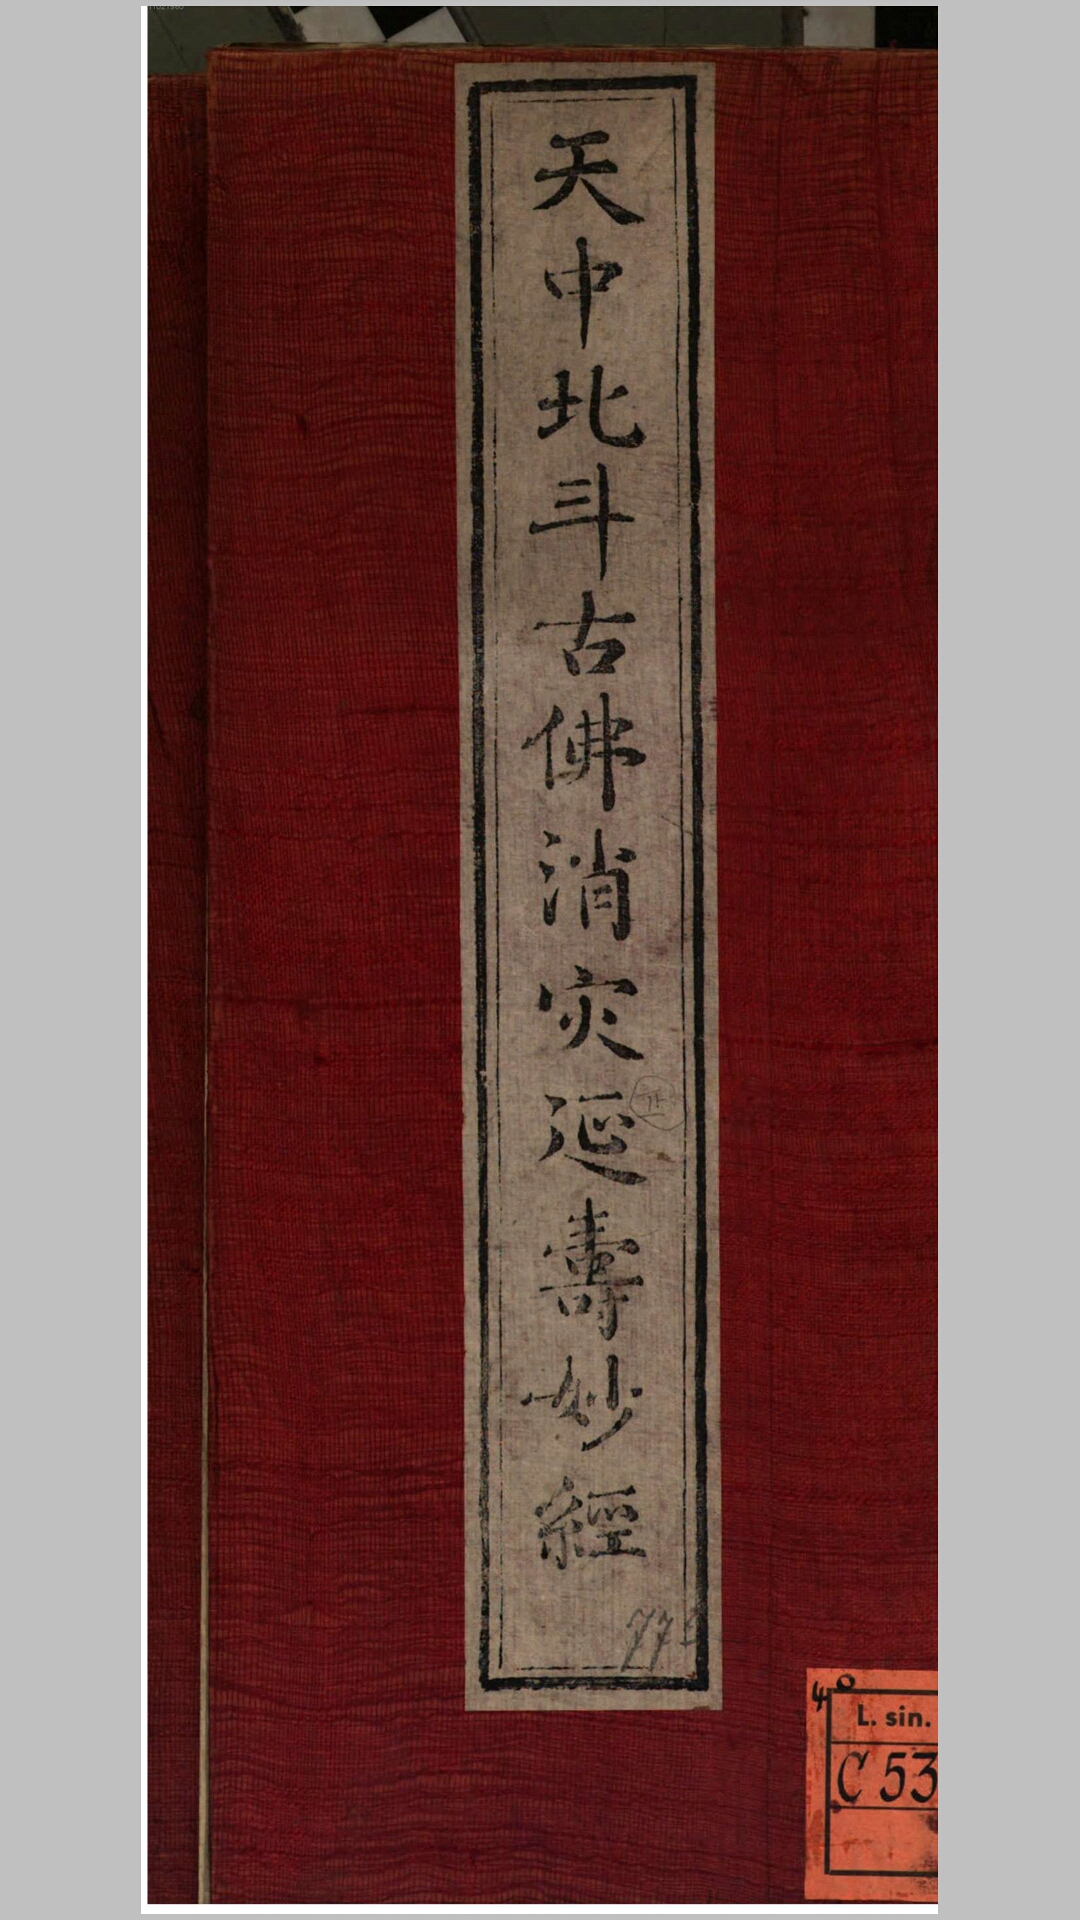 天中北斗古佛消灾延壽妙經
77
40
L. sin.
C 53